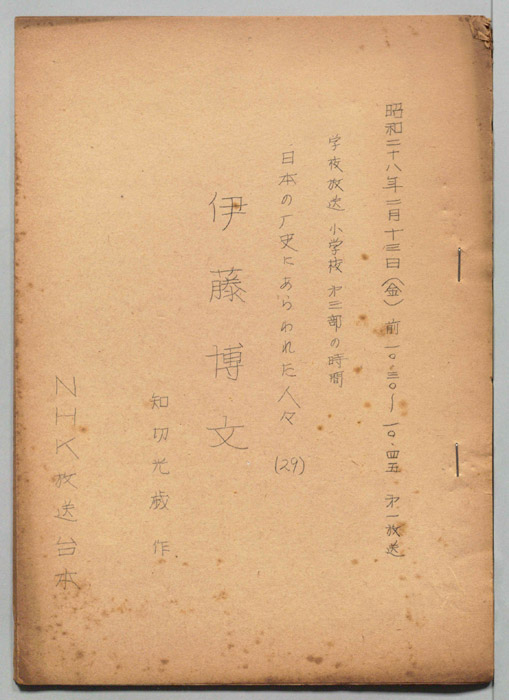 昭和二十八年二月十三日(金) 前 一〇・三〇〜一〇・四五 㐧一放送
学校放送 小学校 㐧三部の時間
日本の厂史にあらわれた人々 (29)
伊藤博文
知切光歳 作
NHK放送台本